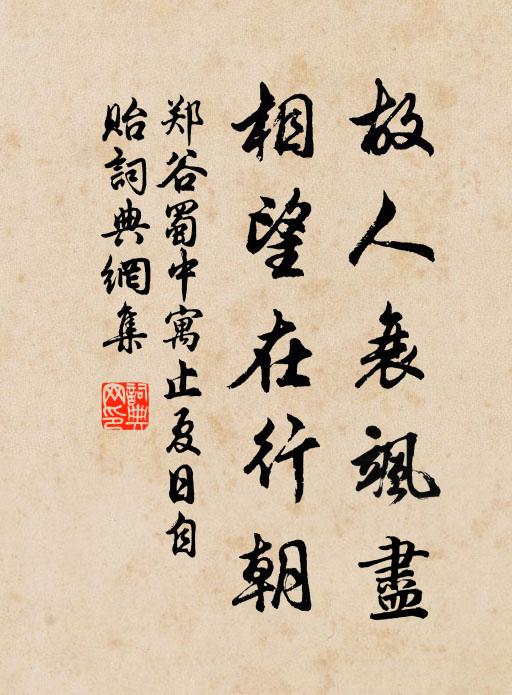 故人衰颯盡
相望在行朝
郑谷蜀中寓止夏日自
貽詞典網集
詞典網印